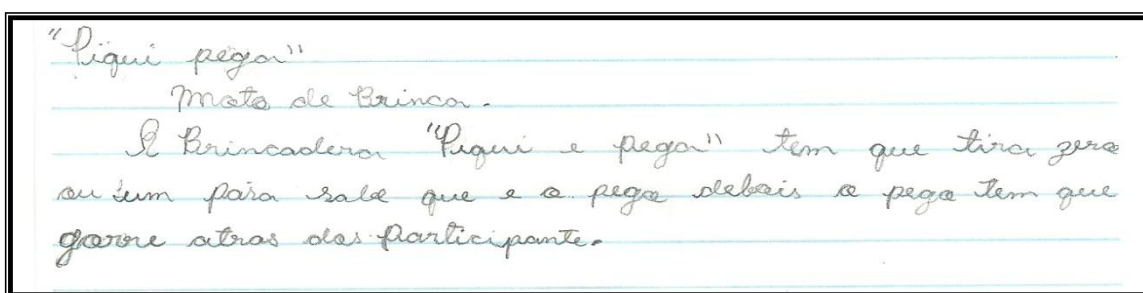 "Piqui pega"
Moto de Brinca.
A Brincadera "Piqui e pega" tem que tira zero
ou um para sabe que e o pego debois o pego tem que
gorre atras dos Participante.